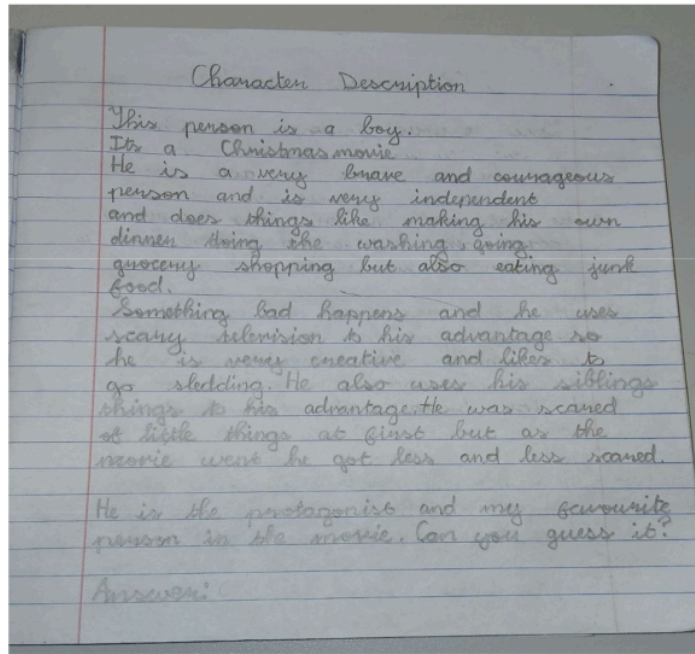 Character Description
This person is a boy.
Its a Christmas movie
He is a very brave and courageous
person and is very independent
and does things like making his own
dinner doing the washing, going
grocery shopping but also eating junk
food.
Something bad happens and he uses
scary television to his advantage so
he is very creative and likes to
go sledding. He also uses his siblings
things to his advantage. He was scared
of little things at first but as the
movie went he got less and less scared.
He is the protagonist and my favourite
person in the movie. Can you guess it?
Answer: